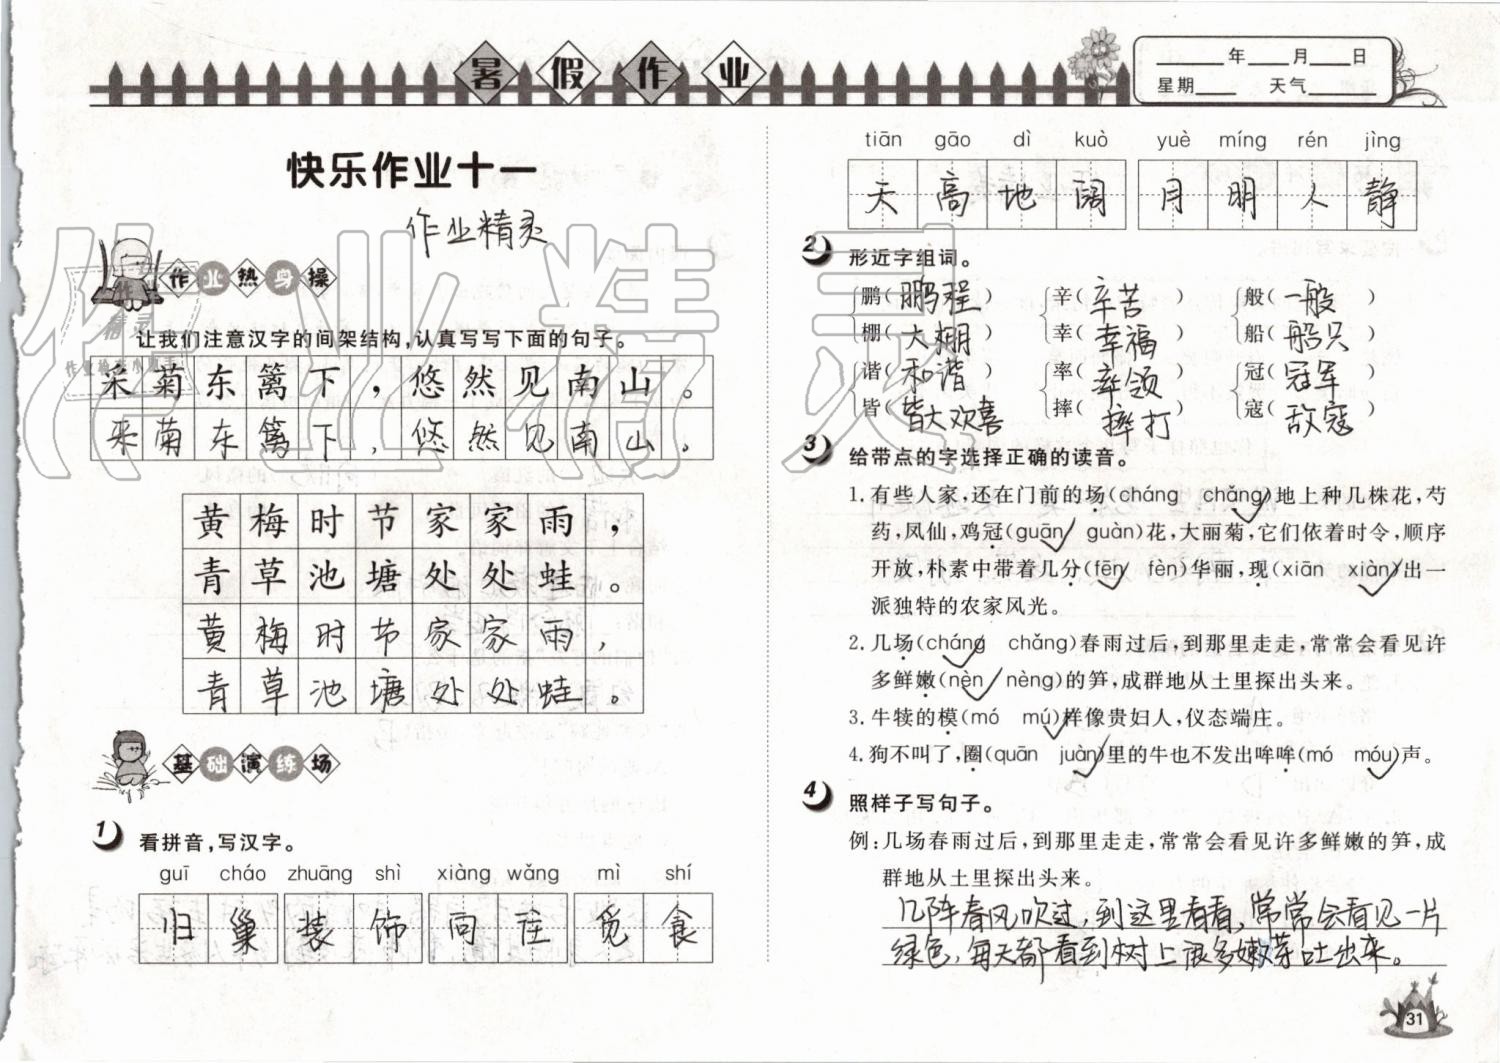 暑假作业
____年____月____日
星期____ 天气____
快乐作业十一
作业精灵
作业热身操
让我们注意汉字的间架结构,认真写写下面的句子。
采菊东篱下,悠然见南山。
采菊东篱下,悠然见南山。
黄梅时节家家雨,
青草池塘处处蛙。
黄梅时节家家雨,
青草池塘处处蛙。
基础演练场
1 看拼音,写汉字。
guī cháo zhuāng shì xiàng wǎng mì shí
归巢 装饰 向往 觅食
tiān gāo dì kuò yuè míng rén jìng
天高地阔 月明人静
2 形近字组词。
鹏(鹏程) 辛(辛苦) 般(一般)
棚(大棚) 幸(幸福) 船(船只)
谐(和谐) 率(率领) 冠(冠军)
皆(皆大欢喜) 摔(摔打) 寇(敌寇)
3 给带点的字选择正确的读音。
1. 有些人家,还在门前的场(cháng chǎng✓)地上种几株花,芍
药,凤仙,鸡冠(guān✓ guàn)花,大丽菊,它们依着时令,顺序
开放,朴素中带着几分(fēn✓ fèn)华丽,现(xiān xiàn✓)出一
派独特的农家风光。
2. 几场(cháng✓ chǎng)春雨过后,到那里走走,常常会看见许
多鲜嫩(nèn✓ nèng)的笋,成群地从土里探出头来。
3. 牛犊的模(mó mú✓)样像贵妇人,仪态端庄。
4. 狗不叫了,圈(quān juàn✓)里的牛也不发出哞哞(mó móu✓)声。
4 照样子写句子。
例:几场春雨过后,到那里走走,常常会看见许多鲜嫩的笋,成
群地从土里探出头来。
几阵春风吹过,到这里看看,常常会看见一片
绿色,每天都看到树上很多嫩芽吐出来。
31